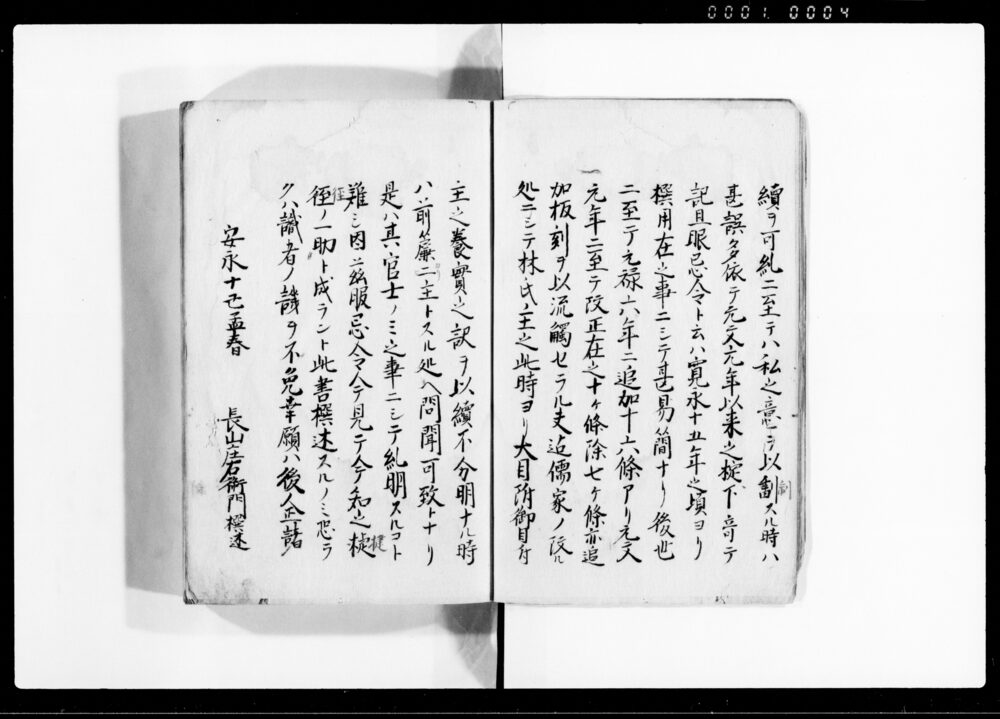 0001.0004
續ヲ可糺ニ至テハ私之意ヲ以劃スル時ハ
制
甚誤多依テ元文元年以来之掟下音テ
記且服忌令ト云ハ寛永十五年之頃ヨリ
撰用在之事ニシテ甚易簡ナリ後世
ニ至テ元禄六年ニ追加十六條アリ元文
元年ニ至テ改正在之十ヶ條除七ヶ條亦追
加板刻ヲ以流觸セラル丈迠儒家ノ改ル
処ニシテ林氏ノ主之此時ヨリ大目附御目付
主之養實之訳ヲ以續不分明ナル時
ハ前簾ニ主トスル処ヘ問聞可致トナリ
是ハ其官士ノミ之事ニシテ糺明スルコト
難シ因玆服忌令ヘテ見テ今知之掟
捷
径
徑ノ一助ト成ラント此書撰述スルノミ恐ラ
クハ識者ノ譏ヲ不免幸願ハ後人企諸
安永十己孟春
長山庄右衛門撰述